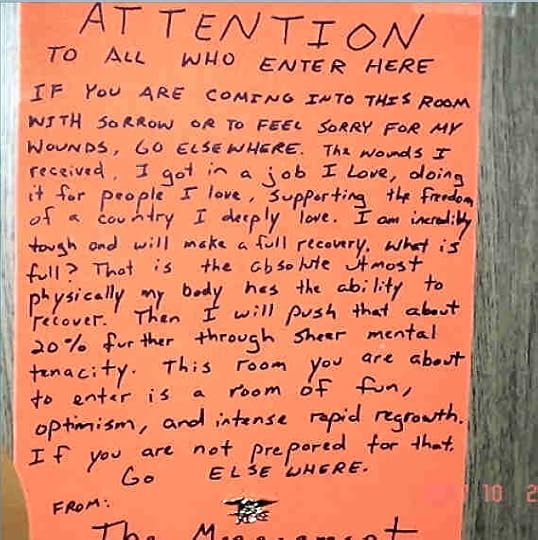 ATTENTION
TO ALL WHO ENTER HERE
IF YOU ARE COMING INTO THIS ROOM
WITH SORROW OR TO FEEL SORRY FOR MY
WOUNDS, GO ELSEWHERE. The wounds I
received, I got in a job I love, doing
it for people I love, supporting the freedom
of a country I deeply love. I am incredibly
tough and will make a full recovery. What is
full? That is the absolute utmost
physically my body has the ability to
recover. Then I will push that about
20% further through sheer mental
tenacity. This room you are about
to enter is a room of fun,
optimism, and intense rapid regrowth.
If you are not prepared for that,
Go ELSEWHERE.
FROM:
The Management
10 2